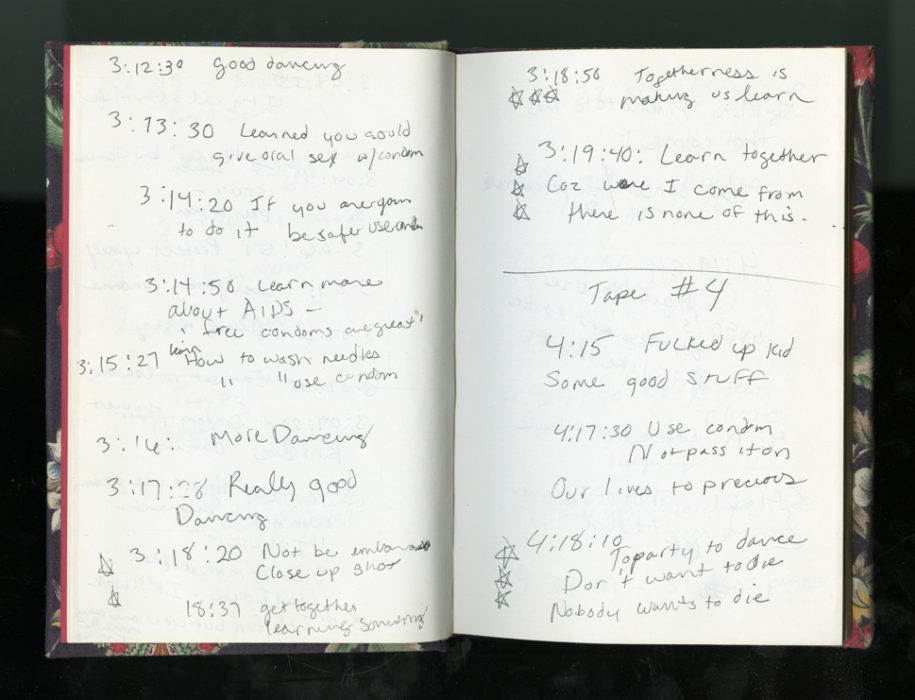 3:12:30 Good dancing
3:13:30 Learned you could
give oral sex w/condm
3:14:20 If you are goin
to do it be safer use condm
3:14:50 Learn more
about AIDS —
"free condoms are great"
3:15:27 learn How to wash needles
" " use condom
3:16: More Dancing
3:17:28 Really good
Dancing
3:18:20 Not be embarass
Close up shot
18:37 get together
learning something
3:18:50 Togetherness is
making us learn
3:19:40: Learn together
Coz were I come from
there is none of this.
Tape #4
4:15 Fucked up kid
Some good stuff
4:17:30 Use condm
Not pass it on
Our lives to precious
4:18:10
To party to dance
Don't want to die
Nobody wants to die